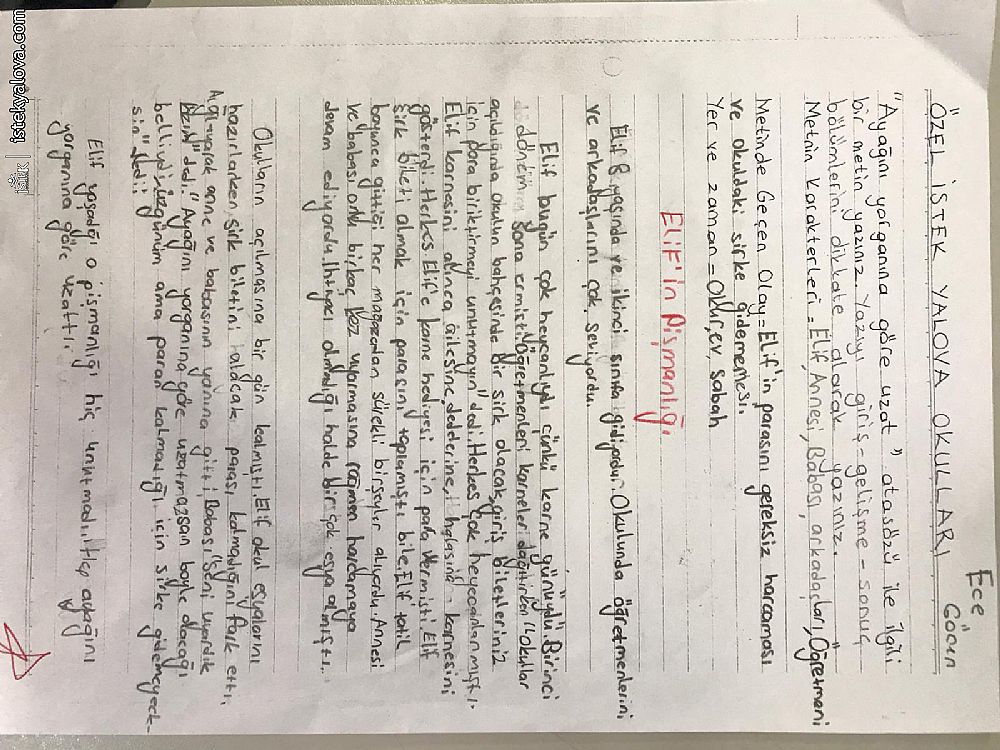 Ece
Göcen
ÖZEL İSTEK YALOVA OKULLARI
"Ayağını yorganına göre uzat" atasözü ile ilgili
bir metin yazınız. Yazıyı giriş-gelişme-sonuç
bölümlerini dikkate alarak yazınız.
Metnin karakterleri = Elif, Annesi, Babası, arkadaşları, Öğretmeni
Metinde Geçen Olay = Elif'in parasını gereksiz harcaması
ve okuldaki sirke gidememesi.
Yer ve zaman = Okul, ev, sabah
Elif'in Pişmanlığı
Elif 8 yaşında ve ikinci sınıfa gidiyordur. Okulunda öğretmenlerini
ve arkadaşlarını çok seviyordu.
Elif bugün çok heycanlıydı çünkü karne günüydü. Birinci
dönem sona ermişti. Öğretmenleri karneleri dağıtırken "okullar
açıldığında okulun bahçesinde bir sirk olacak, giriş biletleriniz
için para biriktirmeyi unutmayın" dedi. Herkes çok heycanlanmıştı.
Elif karnesini alınca ailesine, dedelerine, halasına karnesini
gösterdi. Herkes Elif'e karne hediyesi için para vermişti. Elif
sirk bileti almak için parasını toplamıştı bile. Elif tatil
boyunca gittiği her mağazadan sürekli birşeyler alıyordu. Annesi
ve babası onu birkaç kez uyarmasına rağmen hardamaya
devam ediyordu. İhtiyacı olmadığı halde bir çok eşya almıştı.
Okulların açılmasına bir gün kalmıştı. Elif okul eşyalarını
hazırlarken sirk biletini alacak parası kalmadığını fark etti.
Ağlayarak anne ve babasının yanına gitti. Babası "Seni uyardık
kızım" dedi. "Ayağını yorganına göre uzatmazsan böyle olacağı
belliydi. üzgünüm ama paran kalmadığı için sirke gidemeyecek-
sin" dedi.
Elif yaşadığı o pişmanlığı hiç unutmadı. Hep ayağını
yorganına göre uzattı.
IŞIK | istekyalova.com